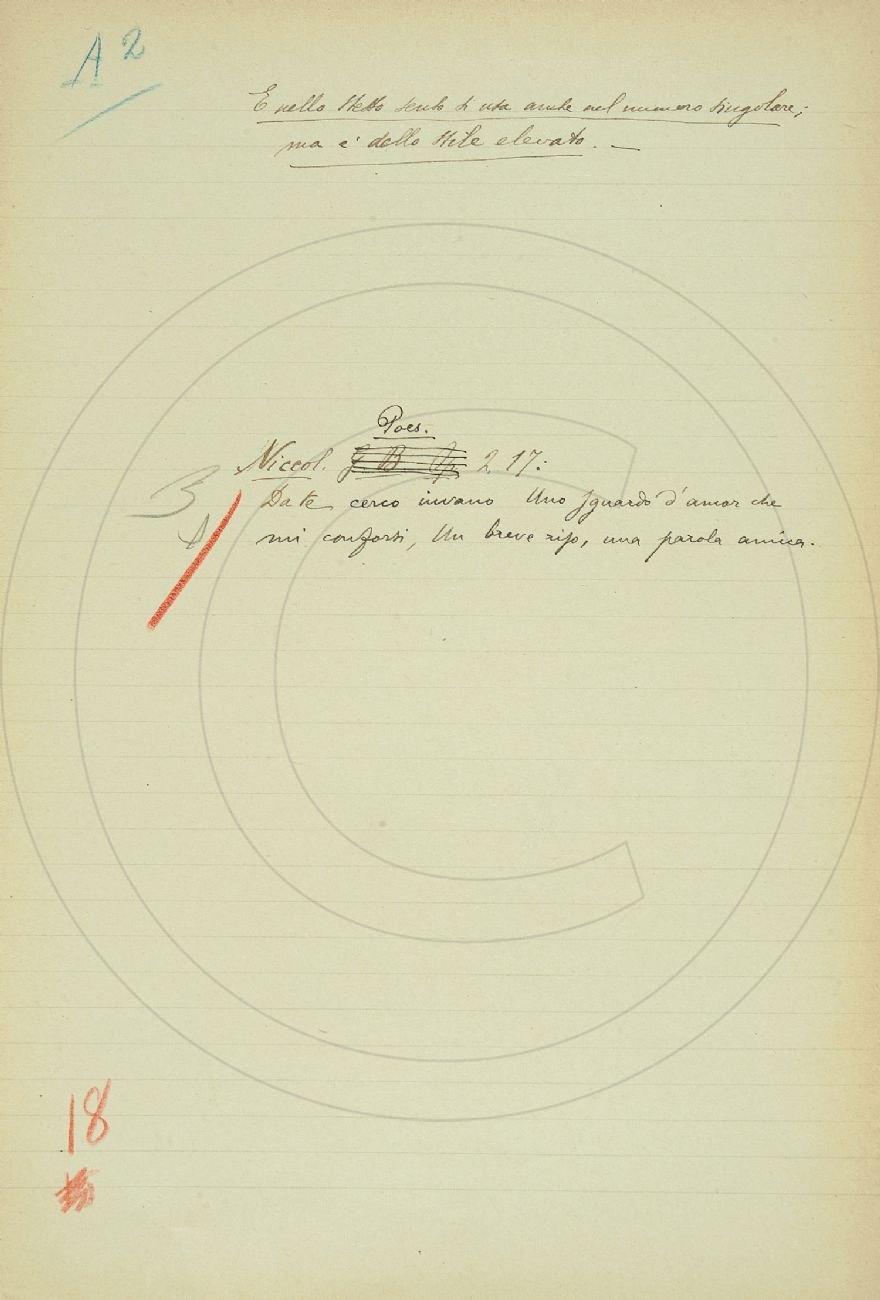 A 2
E nello stesso senso si usa anche nel numero singolare;
ma è dello stile elevato. —
Poes.
Niccol. G B Op 2 17:
Da te cerco invano Uno sguardo d'amor che
mi conforti, Un breve riso, una parola amica.
3
A
18